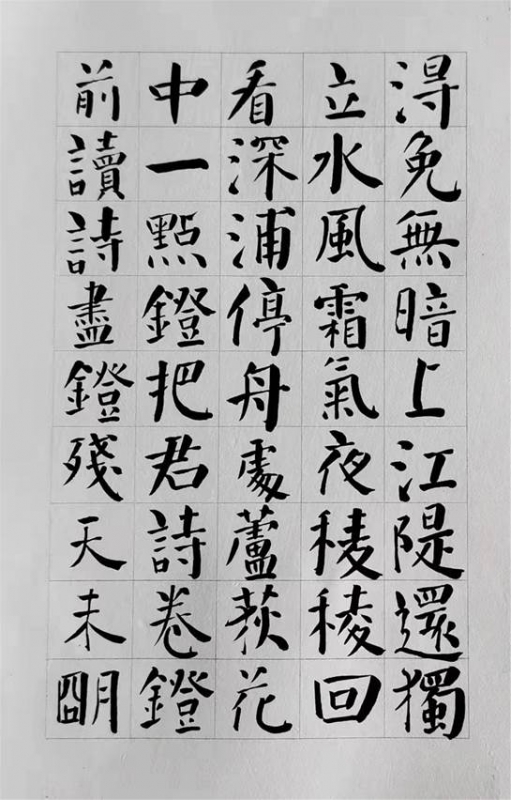 淂免無暗上江隄還獨
立水風霜氣夜稜稜回
看深浦停舟處蘆荻花
中一點鐙把君詩卷鐙
前讀詩盡鐙殘天未朙